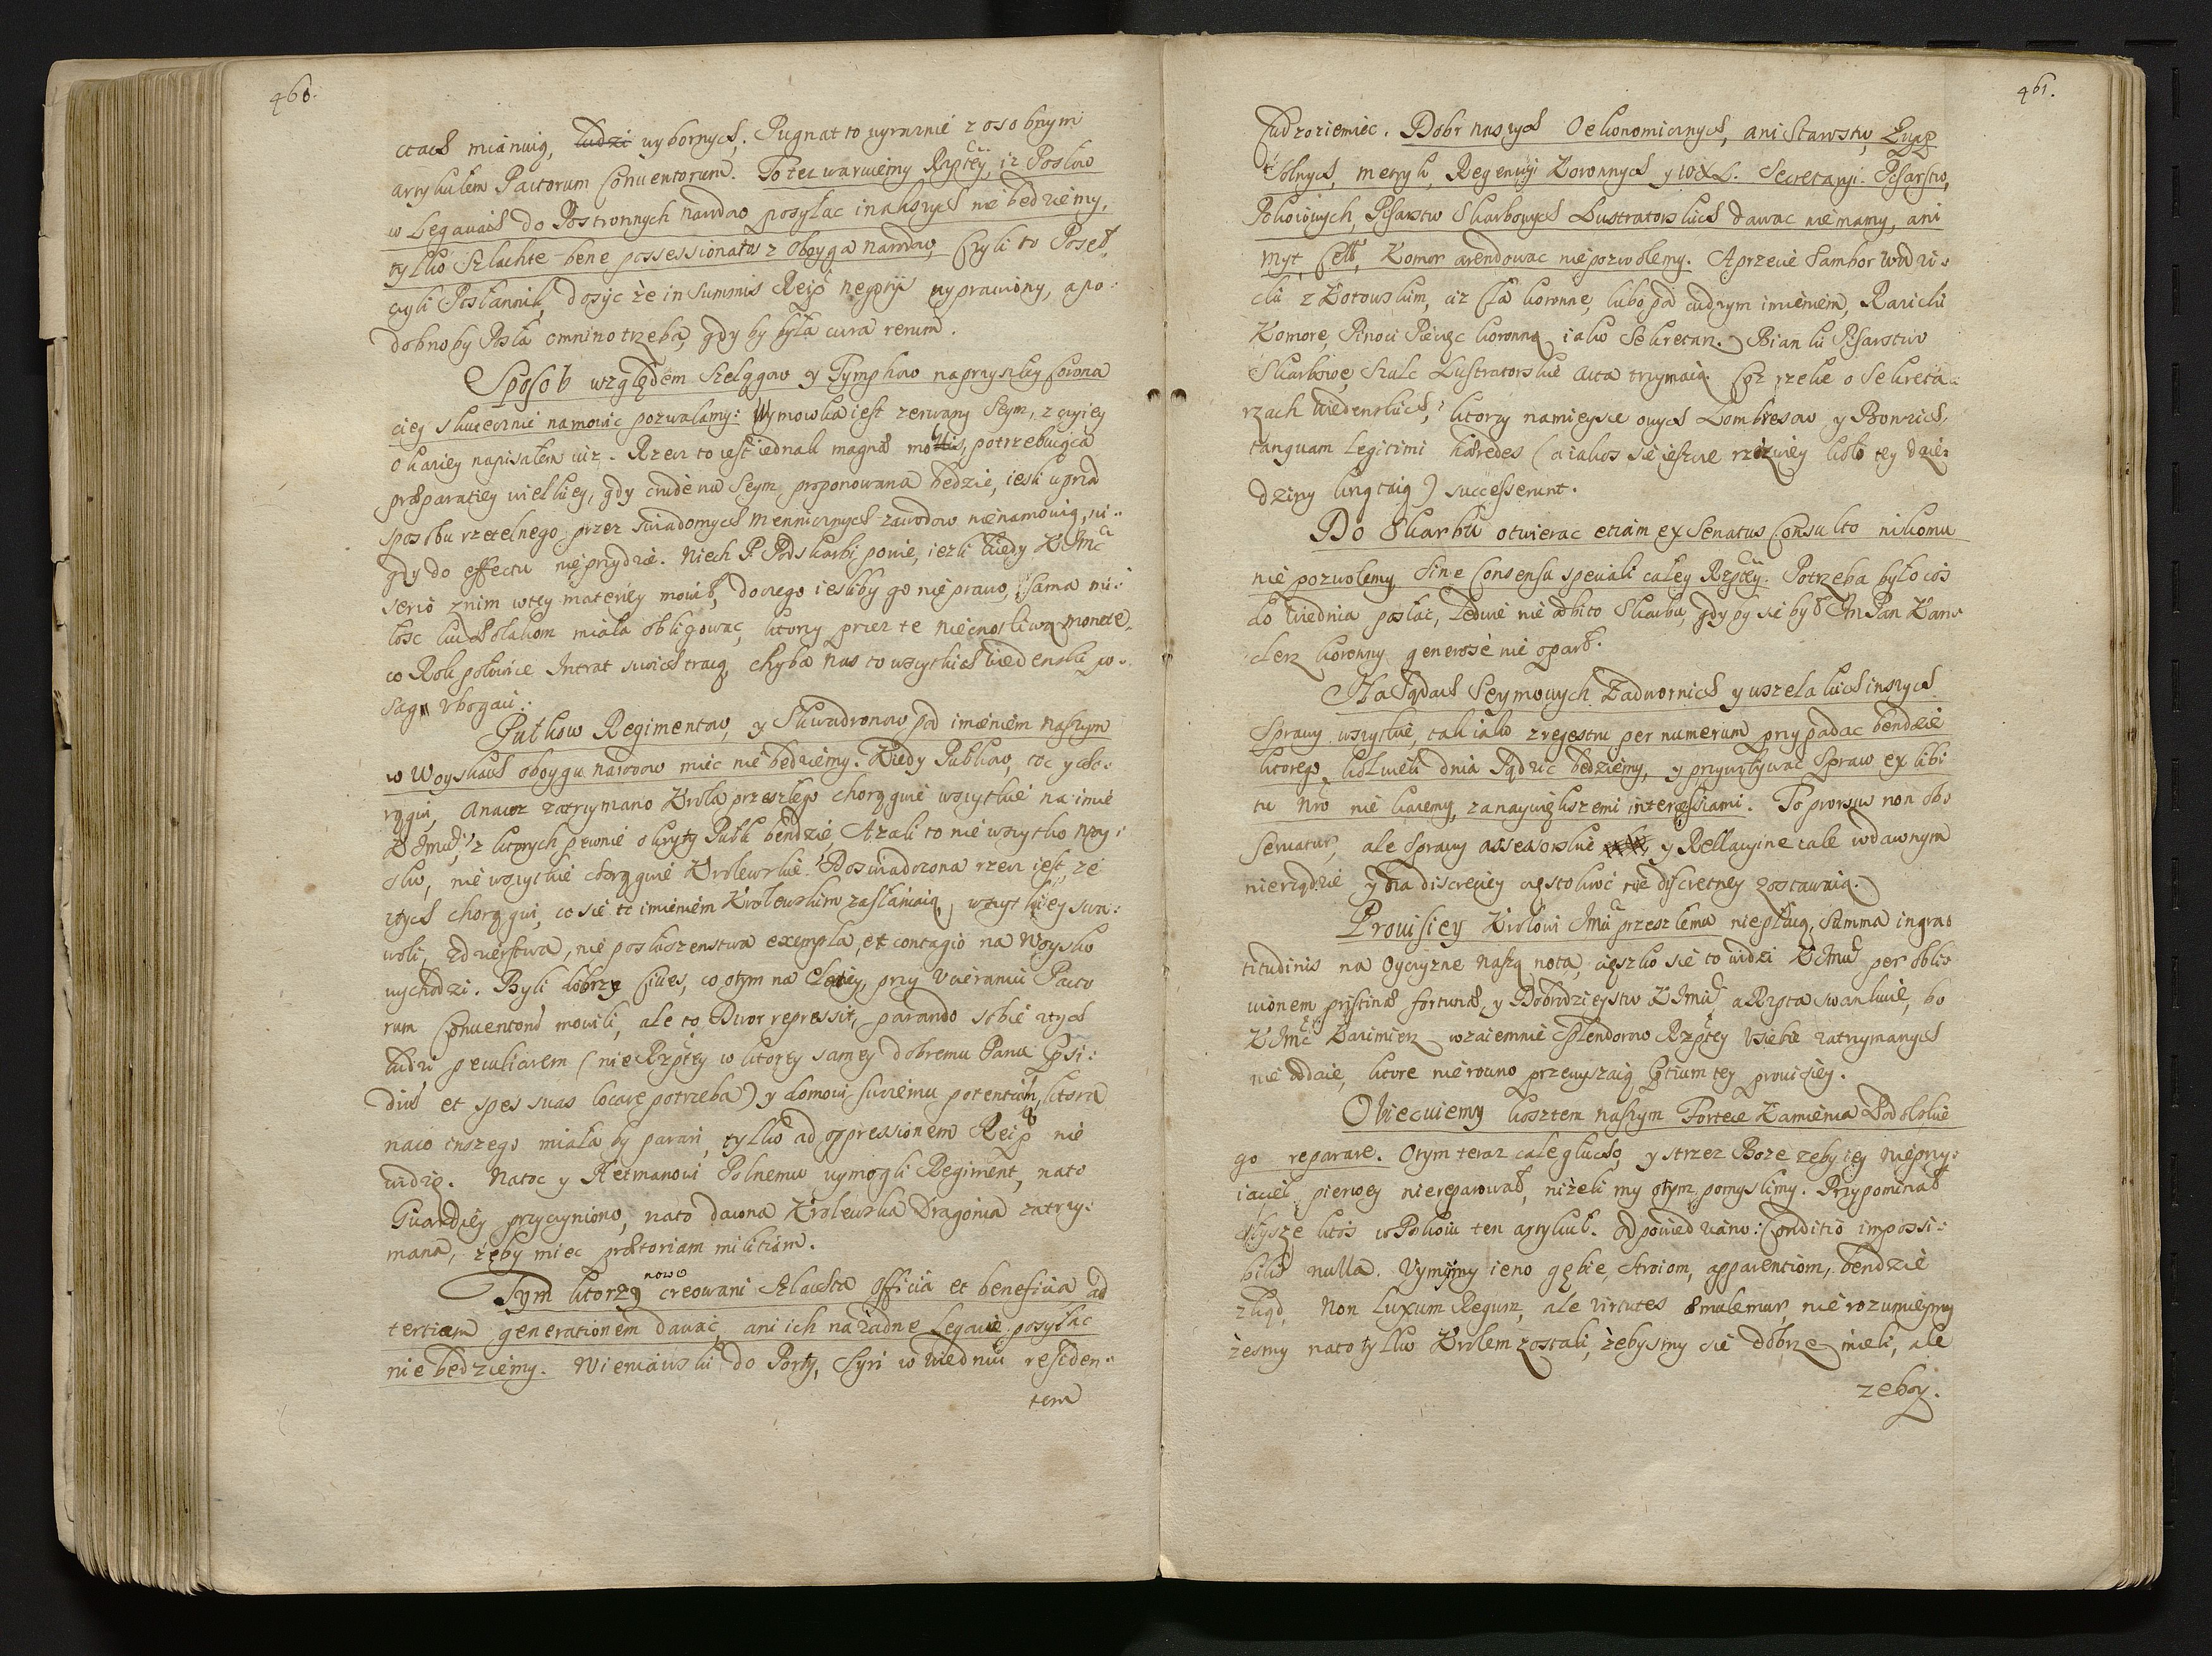 460.
ctach mianuią, ludzi wybornych. Pugnat to wyraznie z osobnym
artykułem Pactorum Conventorum. To tez waruiemy Rzptey, iz Posłow
w Legaciach do Postronnych narodow posyłac inakszych nie bedziemy,
tylko Szlachte bene possessionatos z oboyga narodow, Czyli to Poseł,
czyli Posłannik, dosyc że in Summis Reip negotijs wyprawiony, a po:
dobno by Posła omnino trzeba, gdy by była cura rerum.
Sposob względem Szelągow y Tymphow na przyszłey Corona
ciey skutecznie namowic pozwalamy: Wymowka iest zerwany Seym, z czyiey
okaziey napisałem iuz. Rzecz to iest iednak magnæ molis, potrzebuiąca
præparatiey wielkiey, gdy crude na Seym proponowana bedzie, iesli wprzod
sposobu rzetelnego przez swiadomych mennicznych zawodow nie namowią, ni:
gdy do effectu nie przydzie. Niech P. Podskarbi powie, iezli kiedy K JMc
serio z nim w tey materiey mowił, do czego iesliby go nie prawo, sama mi:
łosc ku Polakom miała obligowac, ktorzy przez te niecnotliwą monete,
co Rok połowice Intrat swoich tracą, chyba nas to wszytkich wiedenski po:
sag ubogaci.
Pułkow Regimentow, y Skwadronow pod imieniem naszym
w Woyskach oboygu narodow miec nie bedziemy. Kiedy Pułkow, toc y cho:
rągwi, a nacoz zatrzymano Krola przeszłego chorągwie wszytkie na imie
K Jmci, z ktorych pewnie okryty Pułk bendzie, Azali to nie wszytko woy:
sko, nie wszytkie chorągwie Krolewskie. Doswiadczona rzecz iest, ze
z tych chorągwi, co sie to imieniem Krolewskim zasłaniaią, wszytkiey swa:
woli, zdzierstwa, nie posłuszenstwa exempla, et contagio na Woysko
wychodzi. Byli dobrzy Cives, co o tym na Electiey, przy ucieraniu Pacto
rum Conventorum mowili, ale to Dwor repressit, parando sobie z tych
ludzi peculiarem (nie Rzptey w ktorey samey dobremu Panu Præsi:
dium et spes suas locare potrzeba) y domowi swoiemu potentiam, ktora
na co inszego miała by parari, tylko ad oppressionem Reip nie
widzę. Natoc y Hetmanowi Polnemu wymogli Regiment, nato
Guardiey przyczyniono, nato dawna Krolewska Dragonia zatrzy:
mana, żeby miec prætoriam militiam.
Tym ktorzy nowo creowani Szlachta officia et beneficia ad
tertiam generationem dawac, ani ich na żadne Legacie posyłac
nie bedziemy. Wieniawski do Porty, Cyri w Wiedniu residen:
tem
461.
Cudzoziemiec. Dobr naszych Oekonomicznych, ani Starostw, Zupp
Solnych, metryk, Regencyi Koronnych y WXL. Secretaryi. Pisarstw,
Pokoiowych, Pisarstw Skarbowych Lustratorskich dawac nie mamy, ani
myt, Cell, Komor arendowac nie pozwolemy. A przecie Sambor Wodzi:
cki z Kotowskim, az Cła koronne, lubo pod cudzym imieniem, Raricki
Komore, Pinoci Pieczęc koronną iako Sekretarz. Bianki Pisarstwo
Skarbowe, Szulc Lustratorskie acta trzymaią. Coż rzeke o Sekreta:
rzach Wiedenskich, ktorzy na mieysce owych Lombresow y Bonzich,
tanquam legitimi hæredes (a iakos sie ieszcze rzezwiey koło tey dzie:
dziny kręcaią) successerunt.
Do Skarbu otwierac etiam ex Senatus Consulto nikomu
nie pozwolemy, sine Consensu speciali całey Rzptey. Potrzeba było cos
do Wiednia posłac, ledwie nie odbito Skarbu, gdy by sie był Jm Pan Kan:
clerz koronny generose nie oparł.
Na Sądach Seymowych Zadwornich y wszelakich inszych
Sprawy wszytkie, tak iako z regestru per numerum przypadac bendzie
ktorego kolwiek dnia Sądzic bedziemy, y przywoływac Spraw ex libi
tu nro nie każemy, za naywiększemi intercessiami. To prorsus non ob:
servatur, ale Sprawy assessorskie y Rellacyine cale w dawnym
nierządzie y na discreciey częstokroc nie discretney zostawaią.
Prowisiey Krolowi Jmci przeszłemu niepłacą, Summa ingra:
titudinis na Oyczyzne naszą nota, cięszko sie to widzi K Jmci per obli:
vionem pristinæ fortunæ, y Dobrodzieystw K Jmci, a Rzpta swankuie, bo
K Jmc Kazimierz wzaiemnie Splendorow Rzptey u siebie zatrzymanych
nie oddaie, ktore nie rowno przewyszaią prætium tey prowisiey.
Obiecuiemy kosztem naszym Fortece Kamienca Podolskie
go reparare. O tym teraz cale głucho, y strzez Boze zeby iey nieprzy:
iaciel pierwey nie reparował, nizeli my o tym pomyslimy. Przypominał
ktos w Pokoiu ten artykuł. Odpowiedziano: Conditio impossi:
bilis nulla. Uymiymy ieno gębie, Stroiom, apparentiom, bendzie
z kąd. Non luxum Regum, ale virtutes æmulemur, nie rozumieymy
żesmy nato tylko Krolem zostali, żebysmy sie dobrze mieli, ale
zeby.